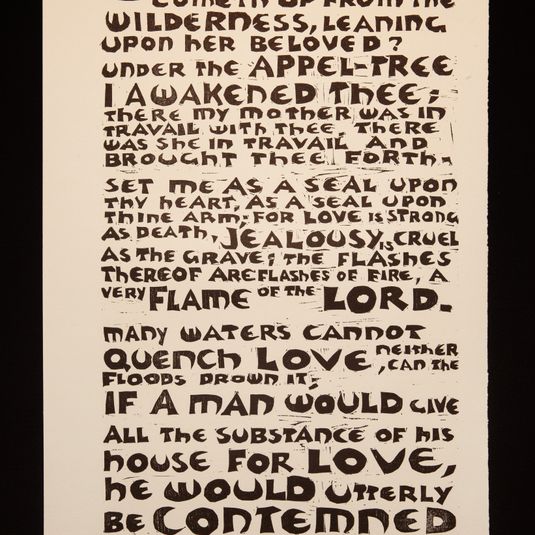 COMETH UP FROM THE
WILDERNESS, LEANING
UPON HER BELOVED?
UNDER THE APPEL-TREE
I AWAKENED THEE;
THERE MY MOTHER WAS IN
TRAVAIL WITH THEE, THERE
WAS SHE IN TRAVAIL AND
BROUGHT THEE FORTH.
SET ME AS A SEAL UPON
THY HEART, AS A SEAL UPON
THINE ARM; FOR LOVE IS STRONG
AS DEATH, JEALOUSY IS CRUEL
AS THE GRAVE; THE FLASHES
THEREOF ARE FLASHES OF FIRE, A
VERY FLAME OF THE LORD.
MANY WATERS CANNOT
QUENCH LOVE, NEITHER CAN THE
FLOODS DROWN IT;
IF A MAN WOULD GIVE
ALL THE SUBSTANCE OF HIS
HOUSE FOR LOVE,
HE WOULD UTTERLY
BE CONTEMNED